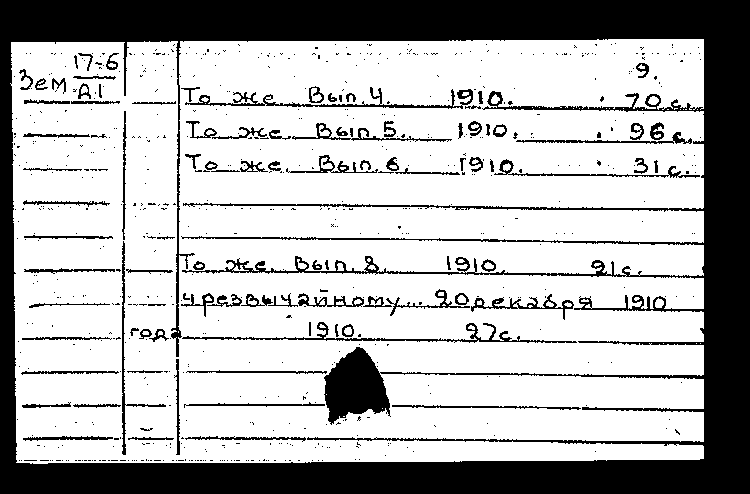 17-6
9.
Зем. А.I
То же Вып. 4. 1910. 70 с.
То же. Вып. 5. 1910. 96 с.
То же. Вып. 6. 1910. 31 с.
То же. Вып. 8. 1910. 21 с.
чрезвычайному... 20 декабря 1910
года 1910. 27 с.